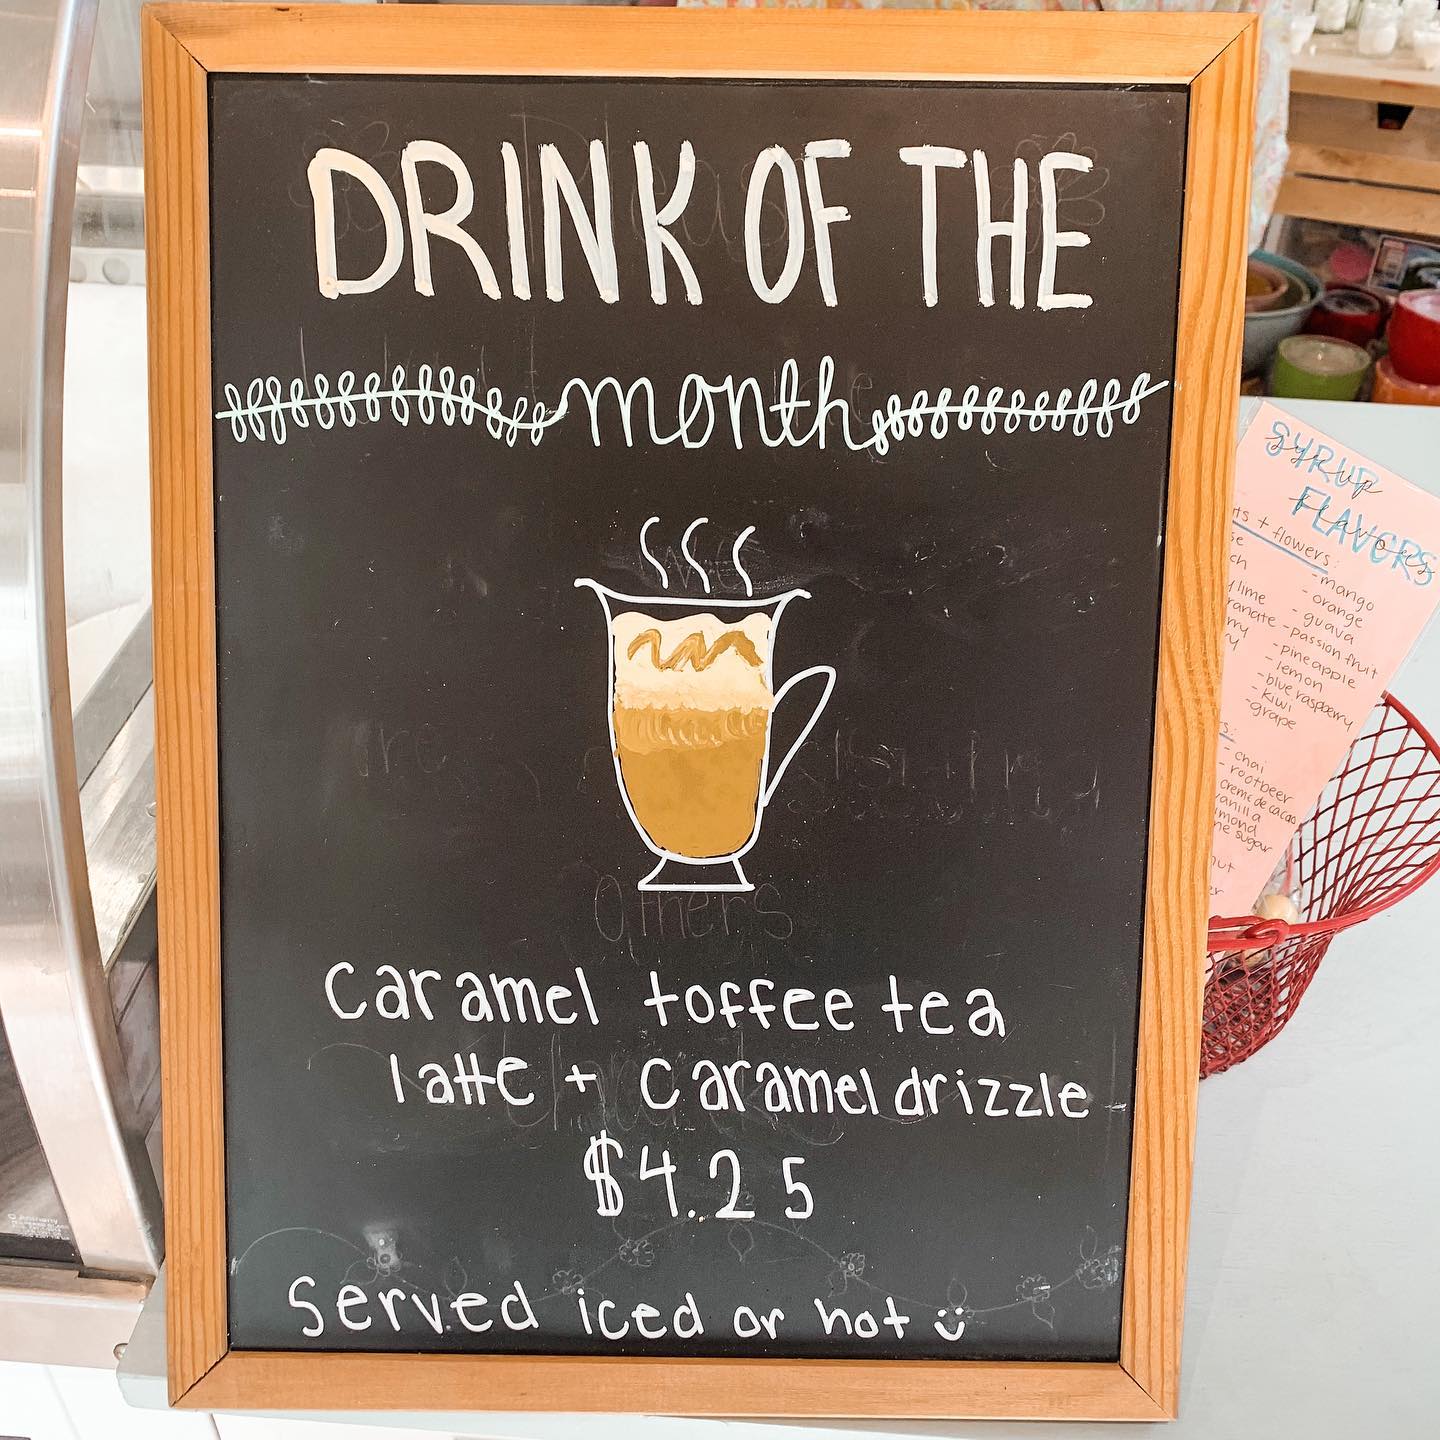 DRINK OF THE
month
Caramel toffee tea
latte + caramel drizzle
$4.25
Served iced or hot
SYRUP
FLAVORS
syrup
flavors
+ flowers:
- mango
- orange
- guava
- passion fruit
- pineapple
- lemon
- blue raspberry
- kiwi
- grape
lime
- chai
- rootbeer
creme de cacao
vanilla
sugar
Others